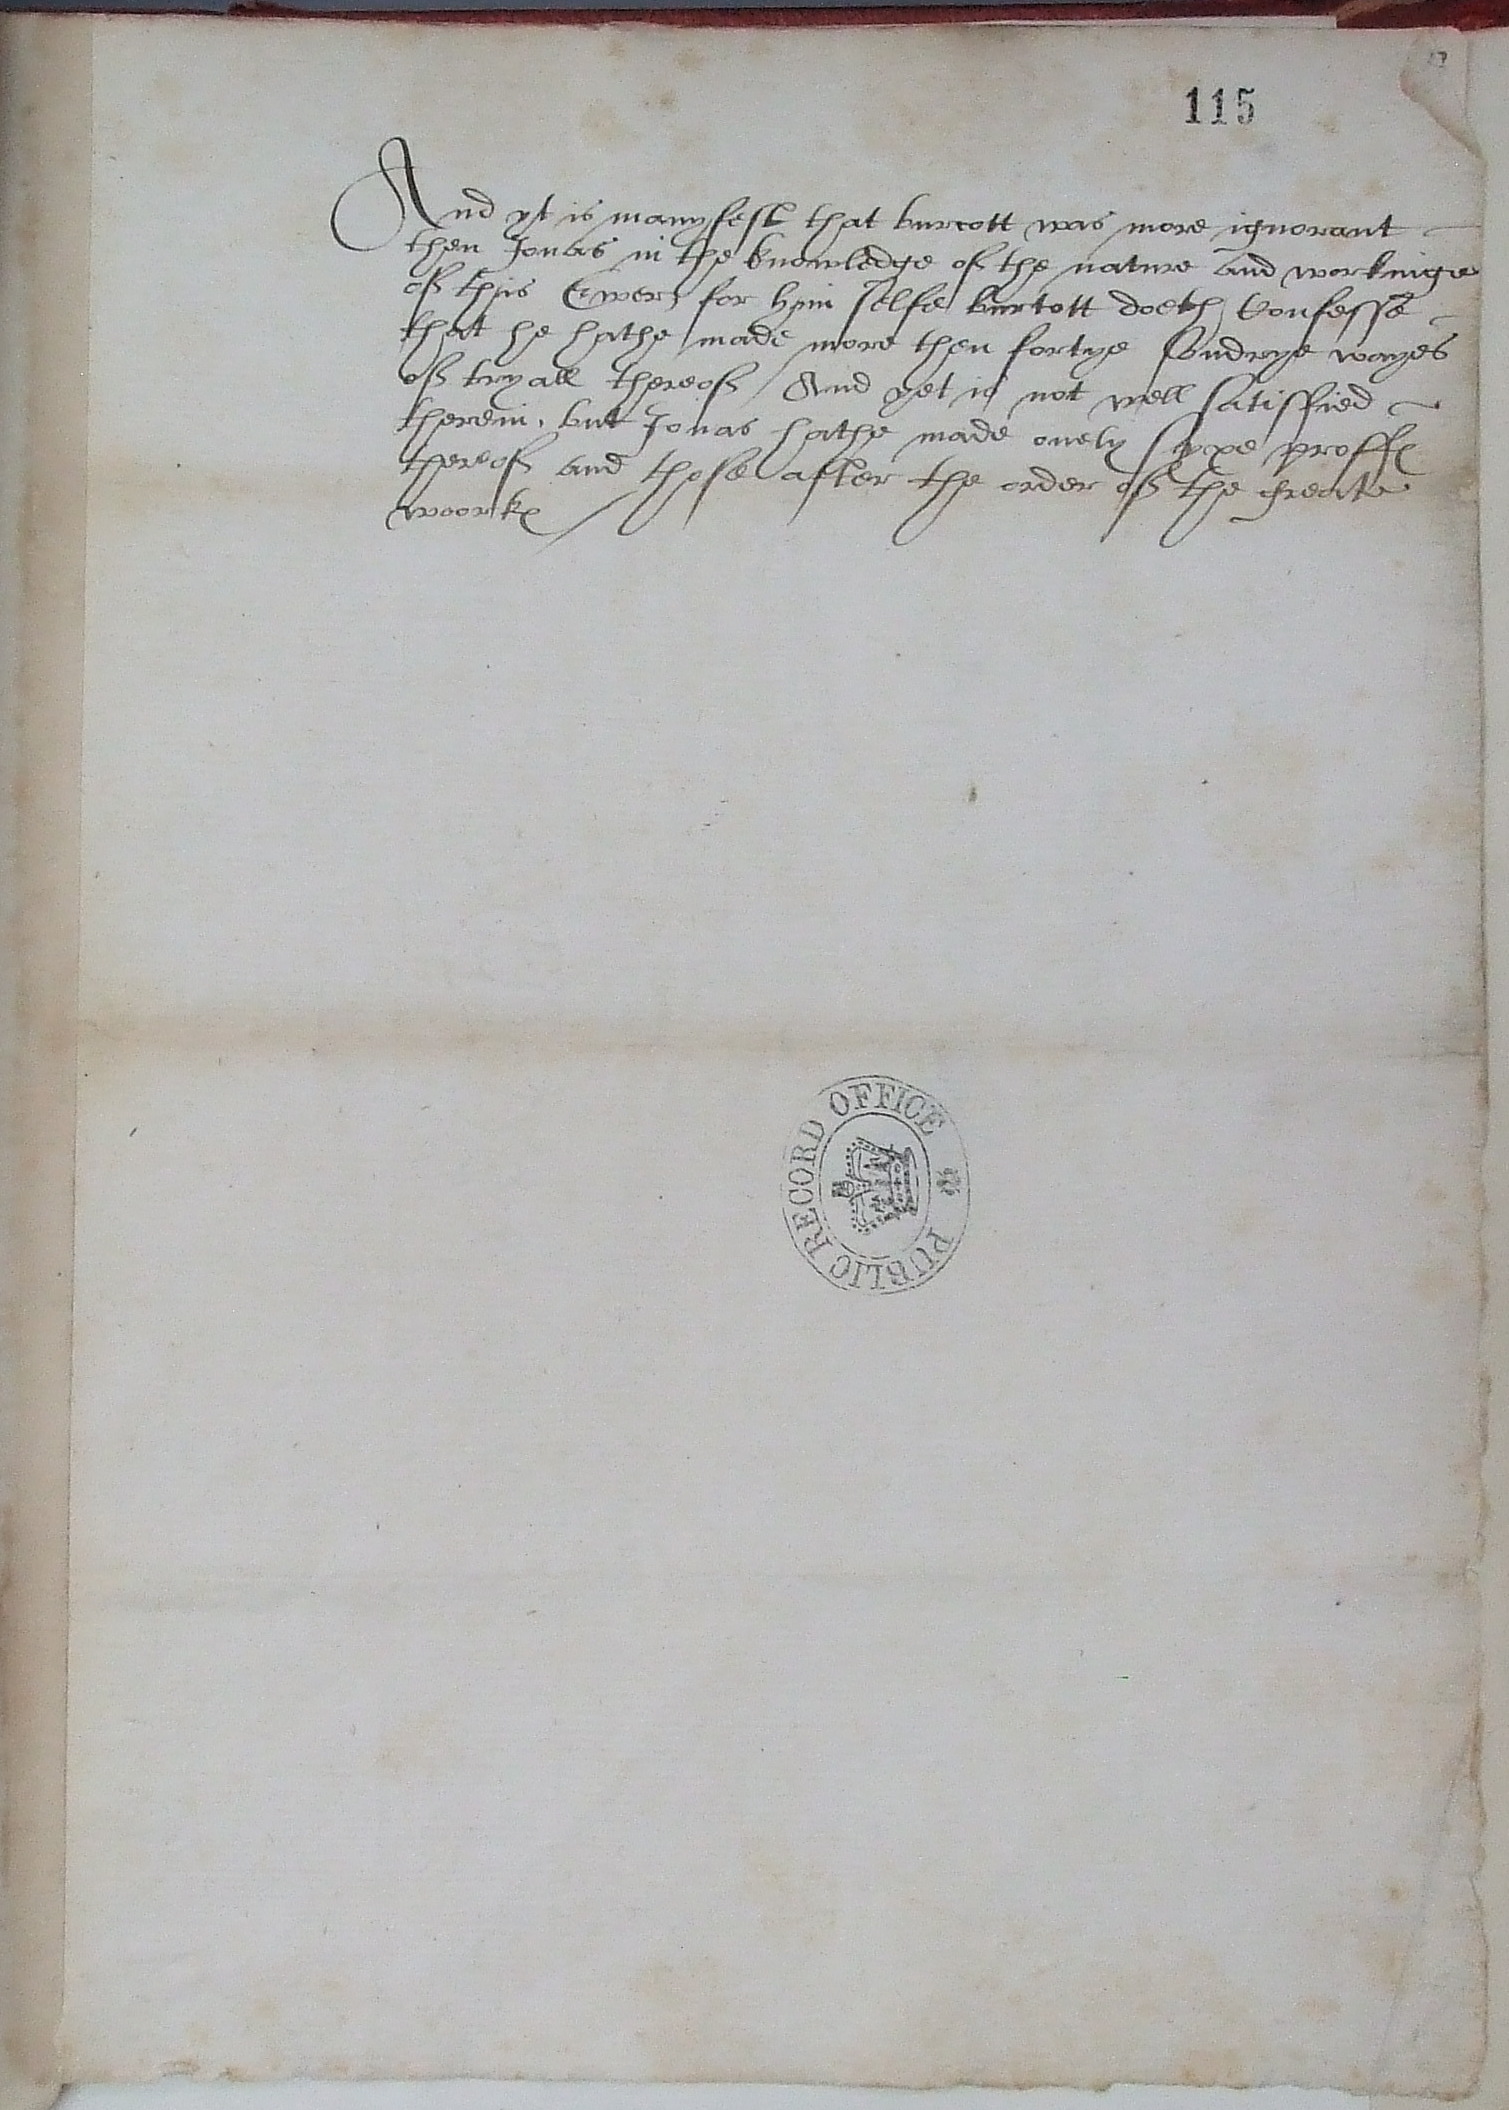 115
And yt is manyfest that burcott was more ignorant
then Jonas in the knowledge of the nature and workinge
of this Ewer, for hym selfe burcott doeth Confesse
that he hathe made more then fortye sondrye wayes
of tryall thereof And yet is not well satisfied
therein. but Jonas hathe made onely syxe proffes
thereof and those after the order of the greate
woorkes
PUBLIC RECORD OFFICE